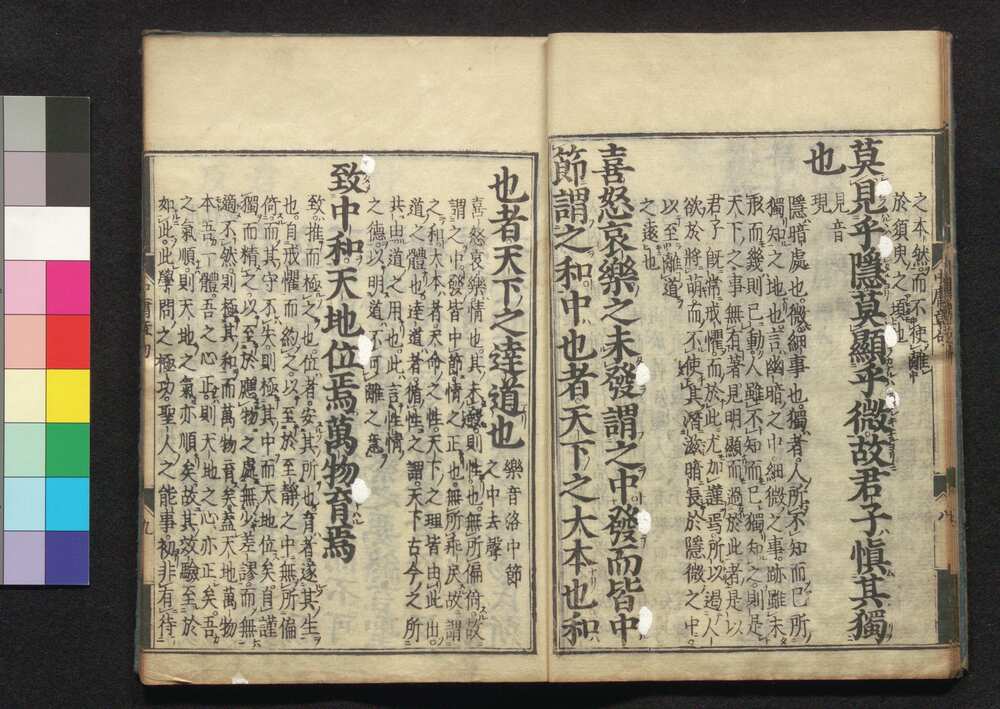 之本然而不使離
於須臾之頃也
莫見乎隱莫顯乎微故君子愼其獨
也
見音
現
隱暗處也。微細事也。獨者。人所不知而已所
獨知之地也。言幽暗之中細微之事。跡雖未
形而幾則已動人雖不知而已獨知之則是
天下之事無有著見明顯而過於此者是以
君子旣常戒懼。而於此尤加謹焉。所以遏人
欲於將萌而不使其潛滋暗長於隱微之中。
以至離道
之遠也
喜怒哀樂之未發謂之中發而皆中
節謂之和中也者天下之大本也和
也者天下之達道也
樂音洛中節
之中去聲
喜怒哀樂情也。其未發則性也。無所偏倚。故
謂之中。發皆中節情之正也。無所乖戾。故謂
之和。大本者天命之性。天下之理皆由此出。
道之體也。達道者循性之謂。天下古今之所
共由。道之用也。此言性情
之德。以明道不可離之意
致中和天地位焉萬物育焉
致。推而極之也。位者。安其所也。育者。遂其生
也。自戒懼而約之。以至於至靜之中無所偏
倚。而其守不失則極其中而天地位矣。自謹
獨而精之。以至於應物之處。無少差謬。而無
適不然則極其和而萬物育矣。蓋天地萬物
本吾一體。吾之心正。則天地之心亦正矣。吾
之氣順。則天地之氣亦順矣。故其效驗至於
如此。此學問之極功。聖人之能事。初非有待